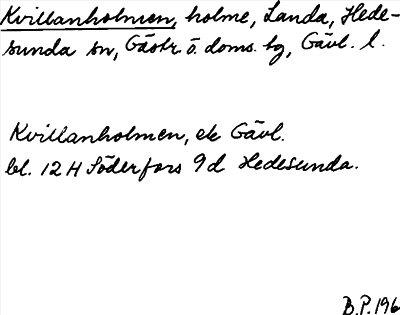 Kvillanholmen, holme, Landa, Hede-
sunda sn, Gästr. ö. doms. tg, Gävl. l.
Kvillanholmen, ek Gävl.
bl. 12 H Söderfors 9 d Hedesunda.
B.P. 196